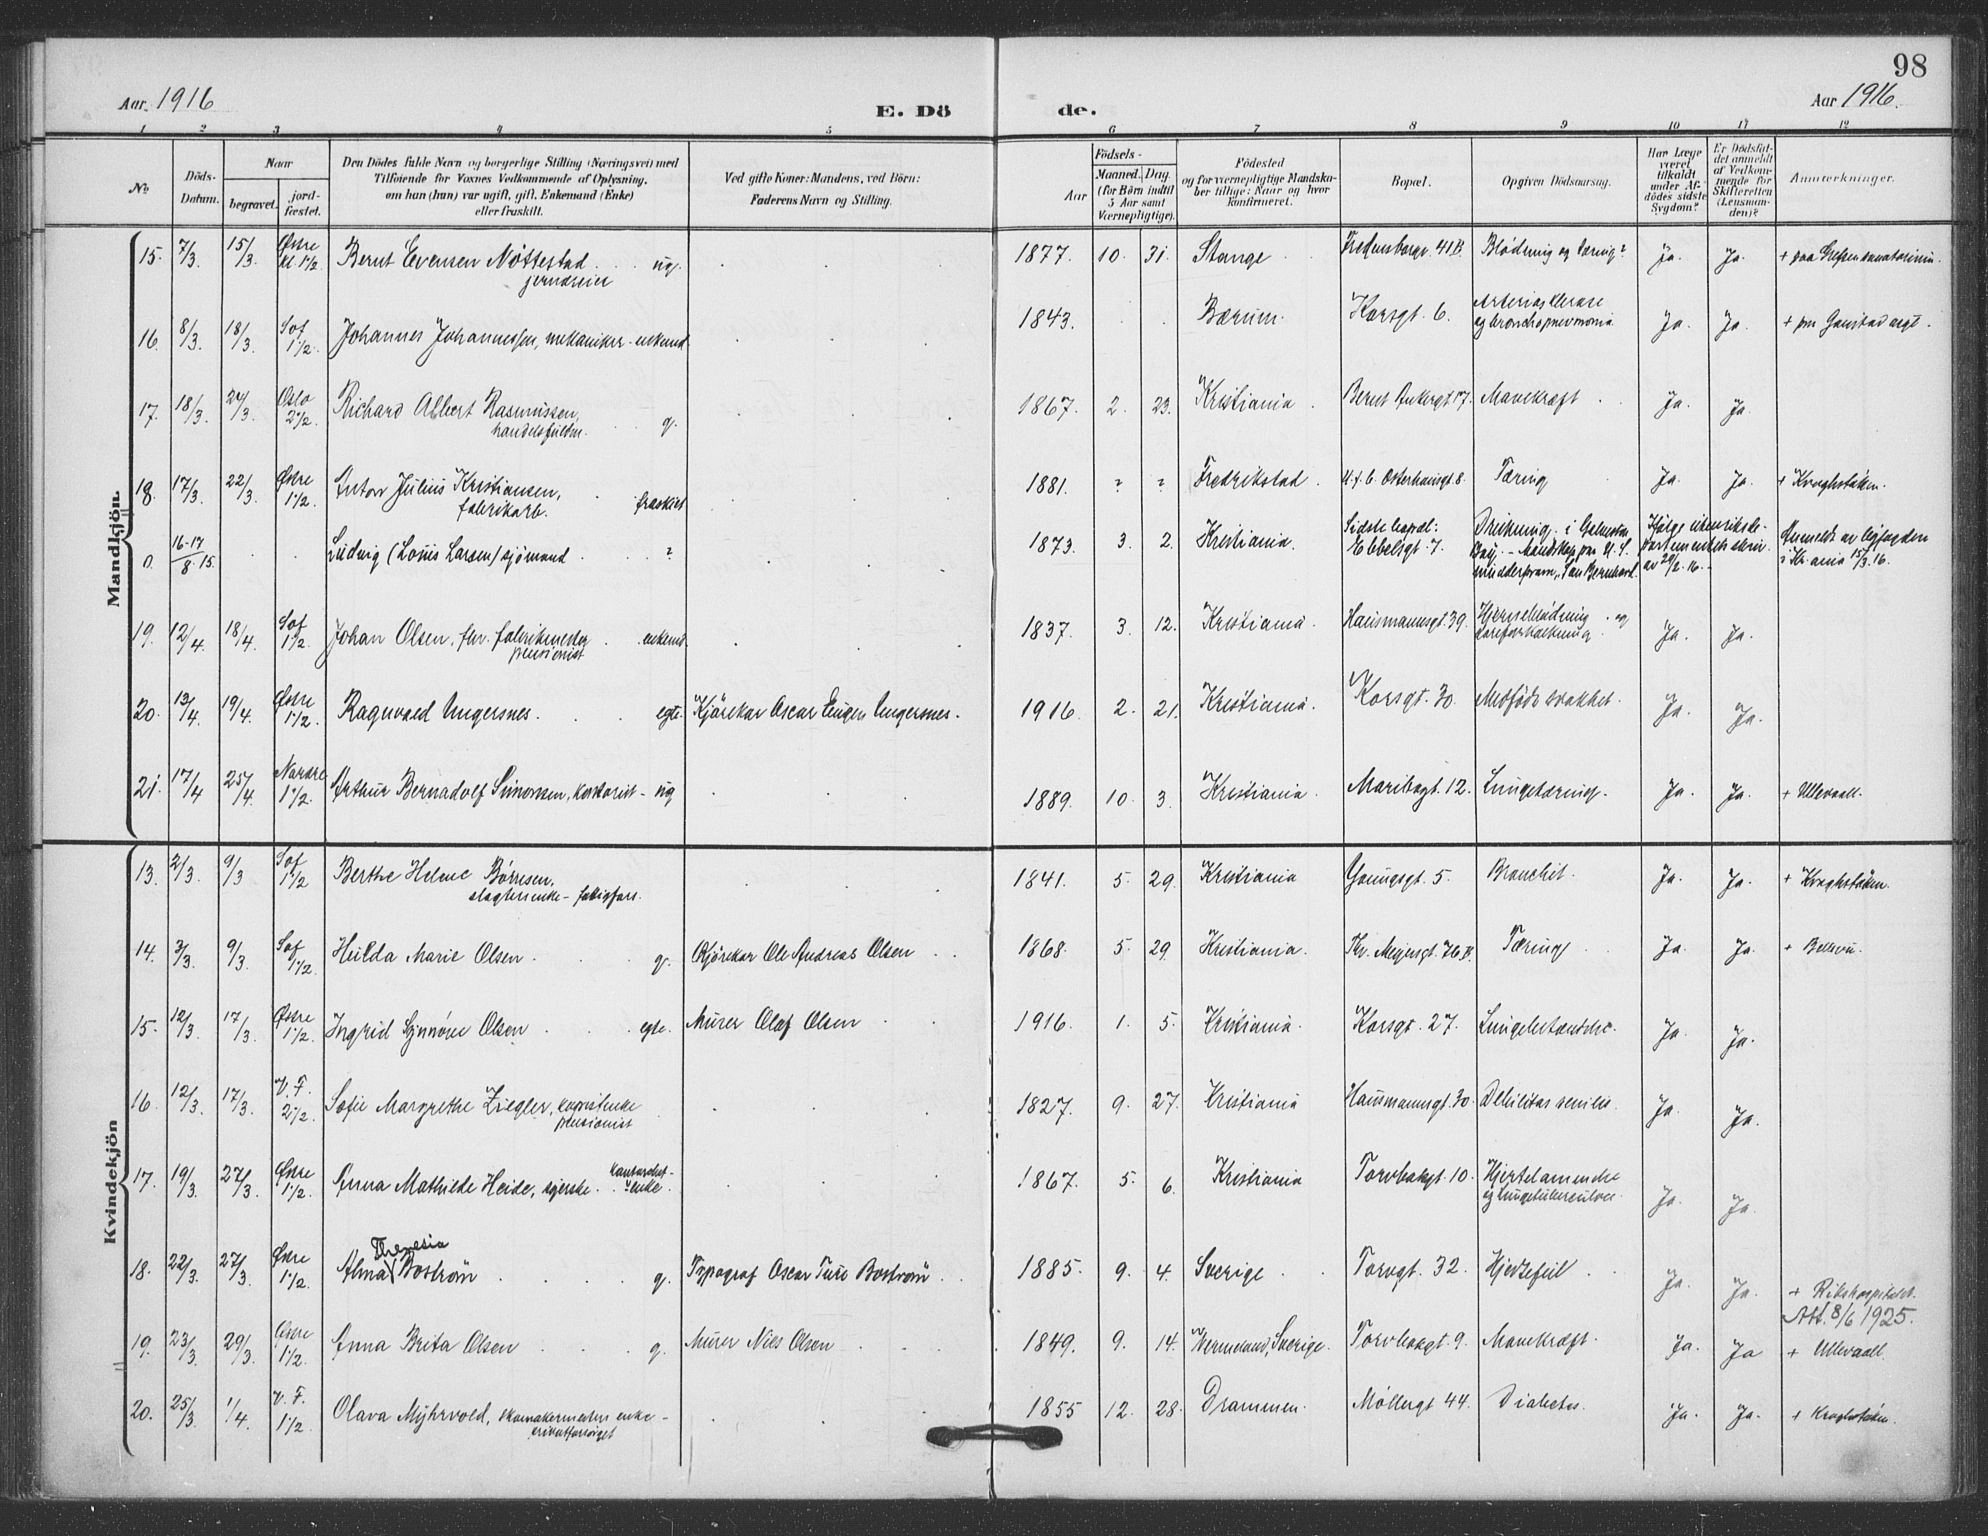 98
Aar 1916
E. Dö de.
Aar 1916.
1 2 3 4 5 6 7 8 9 10 11 12
No
Döds-Datum.
Naar
begravet.
jord-fæstet.
Den Dödes fulde Navn og borgerlige Stilling (Næringsvei) med
Tilföiende for Voxnes Vedkommende af Oplysning,
om han (hun) var ugift, gift, Enkemand (Enke)
eller fraskilt.
Ved gifte Koner: Mandens, ved Börn:
Faderens Navn og Stilling.
Födsels-
Aar
Maaned. Dag.
(for Börn indtil
5 Aar samt
Værnepligtige).
Födested
og for værnepligtige Mandska-
ber tillige: Naar og hvor
konfirmeret.
Bopæl.
Opgiven Dödsaarsag.
Har Læge
været
tilkaldt
under Af-
dödes sidste
Sygdom?
Er Dödsfal-
det anmeldt
af Vedkom-
mende for
Skifteretten
(Lensman-
den)?
Anmerkninger.
Mandkjön.
15. 7/3. 15/3. Østre kl. 1 1/2. Bernt Evensen Nøttestad ug. 1877. 10. 31. Stange Fredensborgv. 41 B. Blødning og tæring? Ja. Ja. + paa Grefsen sanatorium.
16. 8/3. 18/3. Sof 1 1/2. Johannes Johannessen, mekaniker - enkemd. 1843. Bærum. Korsgt. 6. Arteriosklerose Ja. Ja. + paa Gaustad asyl.
og bronchopneumonia
17. 18/3. 24/3. Oslo 2 1/2. Richard Albert Rasmussen, g. 1867. 2. 23. Kristiania. Bernt Ankersgt 17. Mavekræft Ja. Ja.
18. 17/3. 22/3. Østre 1 1/2. Anton Julius Kristiansen, fraskilt 1881. ? ? Fredrikstad. Osterhausgt. 8. Tæring Ja. Ja. + Kroghstøtten.
fabrikarb.
0. 16-17/8 15. Ludvig (Louis Larsen) sjømand ? 1873. 3. 2. Kristiania. Sidste bopæl: Ebbelsgt. 7. Drukning i Galveston Bay.
i Kr.ania 15/3. 16.
19. 12/4. 18/4. Sof 1 1/2. Johan Olsen, fhv. fabrikmester enkemd. 1837. 3. 12. Kristiania. Hausmannsgt. 39. Hjerneblødning og Ja. Ja.
pensionist aareforkalkning
20. 13/4. 19/4. Østre 1 1/2. Ragnvald Ungersnes. egte. Kjørekar Oscar Eugen Ungersnes. 1916. 2. 21. Kristiania. Korsgt. 30. Medfødt svakhet. Ja. Ja.
21. 17/4 25/4. Nordre 1 1/2. Arthur Bernadolf Simonsen, kontorist - ug 1889. 10. 3. Kristiania. Maribogt. 12. Lungetæring. Ja. Ja. + Ullevaal.
Kvindekjön
13. 2/3. 9/3 Sof 1 1/2 Berthe Helene Børresen, 1841. 5. 29. Kristiania Youngsgt. 5. Bronchit. Ja. Ja. + Kroghstøtten.
slagterienke - fattigfors.
14. 3/3. 9/3. Sof 1 1/2. Hulda Marie Olsen g. Kjørekar Ole Andreas Olsen 1868. 5. 29. Kristiania. Thv. Meyersgt. 76 B. Tæring Ja. Ja. + Bellevu.
15. 12/3. 17/3. Østre 1 1/2. Ingrid Synnøve Olsen egte. Murer Olaf Olsen 1916. 1. 5. Kristiania. Korsgt. 27. Lungebetændelse. Ja. Ja.
16. 12/3. 17/3. V. F. 2 1/2. Sofie Margrethe Ziegler, kopistenke 1827. 9. 27. Kristiania Hausmannsgt. 30. Debilitas senilis. Ja. Ja.
pensionist
17. 19/3. 27/3. Østre 1 1/2. Anna Mathilde Heide, syerske. kontorist-enke. 1867. 5. 6. Kristiania Torvbakgt. 10. Ja. Ja.
og lungetuberculose
18. 22/3. 27/3. Østre 1 1/2. Alma Theresia Boström g. Typograf Oscar Ture Boström 1885. 9. 4. Sverige Torvgt. 32. Hjertefeil Ja. Ja. + Rikshospitalet.
Att. 8/6 1925.
19. 23/3. 29/3. Østre 1 1/2. Anna Brita Olsen g. Murer Nils Olsen 1849. 9. 14. Vermeland, Sverige. Torvbakgt. 9. Mavekræft. Ja. Ja + Ullevaall.
20. 25/3. 1/4. V. F. 1 1/2. Olava Myhrvold, skomakermesters enke - 1855 12. 28. Drammen. Møllergt. 44. Diabetes. Ja. Ja. + Kroghstøtten.
privatforsørget